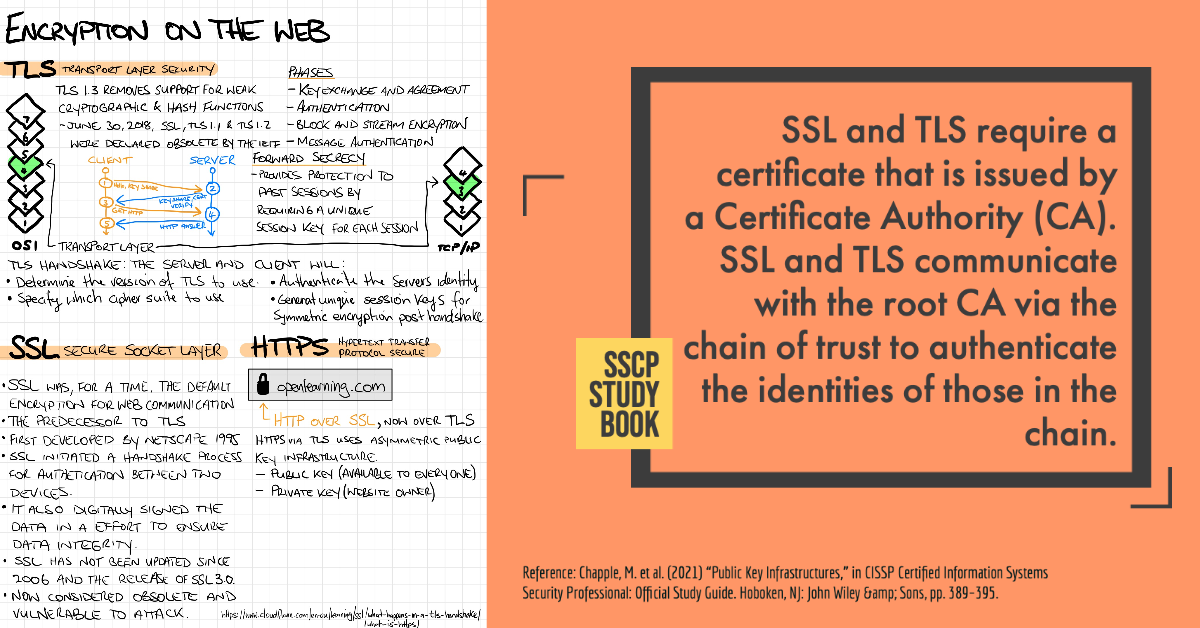 ENCRYPTION ON THE WEB
TLS TRANSPORT LAYER SECURITY
TLS 1.3 REMOVES SUPPORT FOR WEAK
CRYPTOGRAPHIC & HASH FUNCTIONS
- JUNE 30, 2018, SSL, TLS 1.1 & TLS 1.2
WERE DECLARED OBSOLETE BY THE IETF
PHASES
- KEY EXCHANGE AND AGREEMENT
- AUTHENTICATION
- BLOCK AND STREAM ENCRYPTION
- MESSAGE AUTHENTICATION
7
6
5
4
3
2
1
OSI
CLIENT
SERVER
1
KEY SHARE
2
KEY SHARE, CERT
VERIFY
3
GET HTTP
4
HTTP ANSWER
5
FORWARD SECRECY
- PROVIDES PROTECTION TO
PAST SESSIONS BY
REQUIRING A UNIQUE
SESSION KEY FOR EACH SESSION
4
3
2
1
TCP/IP
TRANSPORT LAYER
TLS HANDSHAKE: THE SERVER AND CLIENT WILL:
• Determine the version of TLS to use.
• Specify which cipher suite to use
• Authenticate the Servers identity
• Generat unique session keys for
symmetric encryption post handshake
SSL SECURE SOCKET LAYER
• SSL WAS, FOR A TIME, THE DEFAULT
ENCRYPTION FOR WEB COMMUNICATION
• THE PREDECESSOR TO TLS
• FIRST DEVELOPED BY NETSCAPE 1995
• SSL INITIATED A HANDSHAKE PROCESS
FOR AUTHETICATION BETWEEN TWO
DEVICES.
• IT ALSO DIGITALLY SIGNED THE
DATA IN A EFFORT TO ENSURE
DATA INTEGRITY.
• SSL HAS NOT BEEN UPDATED SINCE
2006 AND THE RELEASE OF SSL 3.0.
• NOW CONSIDERED OBSOLETE AND
VULNERABLE TO ATTACK.
HTTPS HYPERTEXT TRANSFER
PROTOCOL SECURE
openlearning.com
HTTP OVER SSL, NOW OVER TLS
HTTPS VIA TLS USES ASYMMETRIC PUBLIC
KEY INFRASTRUCTURE.
- PUBLIC KEY (AVAILABLE TO EVERYONE)
- PRIVATE KEY (WEBSITE OWNER)
https://www.cloudflare.com/en-au/learning/ssl/what-happens-in-a-tls-handshake/
/what-is-https/
SSL and TLS require a
certificate that is issued by
a Certificate Authority (CA).
SSL and TLS communicate
with the root CA via the
chain of trust to authenticate
the identities of those in the
chain.
SSCP
STUDY
BOOK
Reference: Chapple, M. et al. (2021) “Public Key Infrastructures,” in CISSP Certified Information Systems
Security Professional: Official Study Guide. Hoboken, NJ: John Wiley &amp; Sons, pp. 389–395.